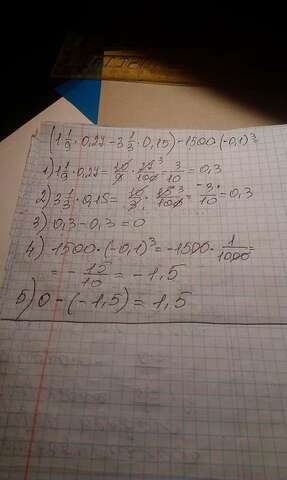 (1 1/9 · 0,27 - 3 1/3 · 0,15) - 1500 · (-0,1)³
1) 1 1/9 · 0,27 = 10/9 · 27 3/100 = 3/10 = 0,3
2) 3 1/3 · 0,15 = 10/3 · 15 3/100 = 3/10 = 0,3
3) 0,3 - 0,3 = 0
4) 1500 · (-0,1)³ = -1500 · 1/1000 =
= - 15/10 = -1,5
5) 0 - (-1,5) = 1,5